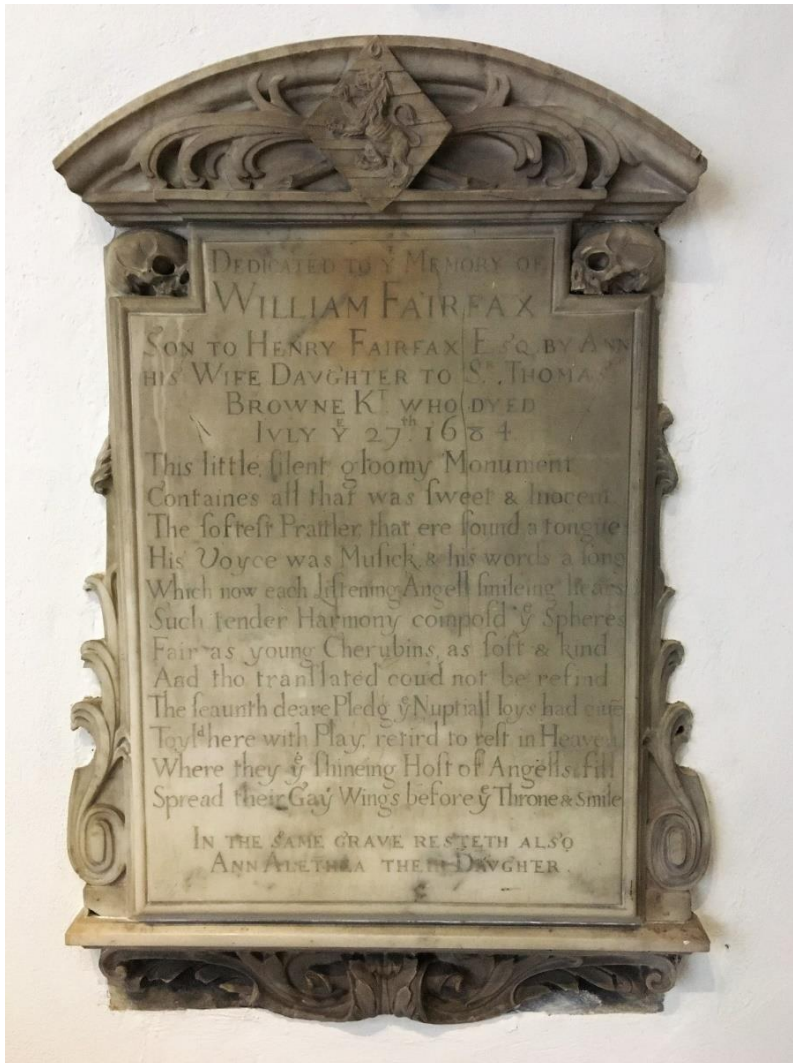 DEDICATED TO Yᴱ MEMORY OF
WILLIAM FAIRFAX
SON TO HENRY FAIRFAX ESQ. BY ANN
HIS WIFE DAVGHTER TO Sᴿ. THOMAS
BROWNE Kᵀ WHO DYED
IVLY Yᴱ 27ᵗʰ. 1684
This little, ſilent gloomy Monument
Containes all that was ſweet & Inocent
The ſofteſt Prattler, that ere found a tongue
His Voyce was Muſick & his words a ſong
Which now each Liſtening Angell ſmileing hears
Such tender Harmony compoſd yᵉ Spheres
Fair as young Cherubins, as ſoft & kind
And tho tranſlated coud not be refind
The ſeaunth deare Pledg yᵉ Nuptiall Ioys had giũe
Toyl'd here with Play, retird to reſt in Heaven
Where they yᵉ ſhineing Hoſt of Angells fill
Spread their Gay Wings before yᵉ Throne & Smile
IN THE SAME GRAVE RESTETH ALSO
ANN ALETHEA THEIR DAVGHER.